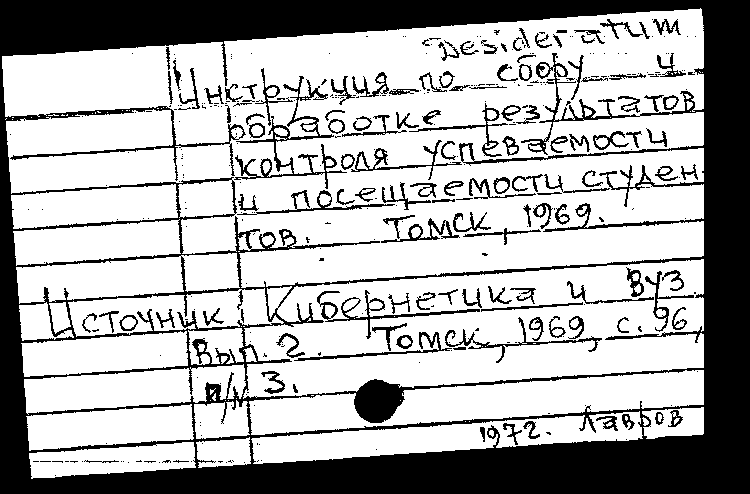 Desideratum
Инструкция по сбору и
обработке результатов
контроля успеваемости
и посещаемости студен-
тов. Томск, 1969.
Источник: Кибернетика и вуз.
Вып. 2. Томск, 1969, с. 96,
п/м 3.
1972. Лавров